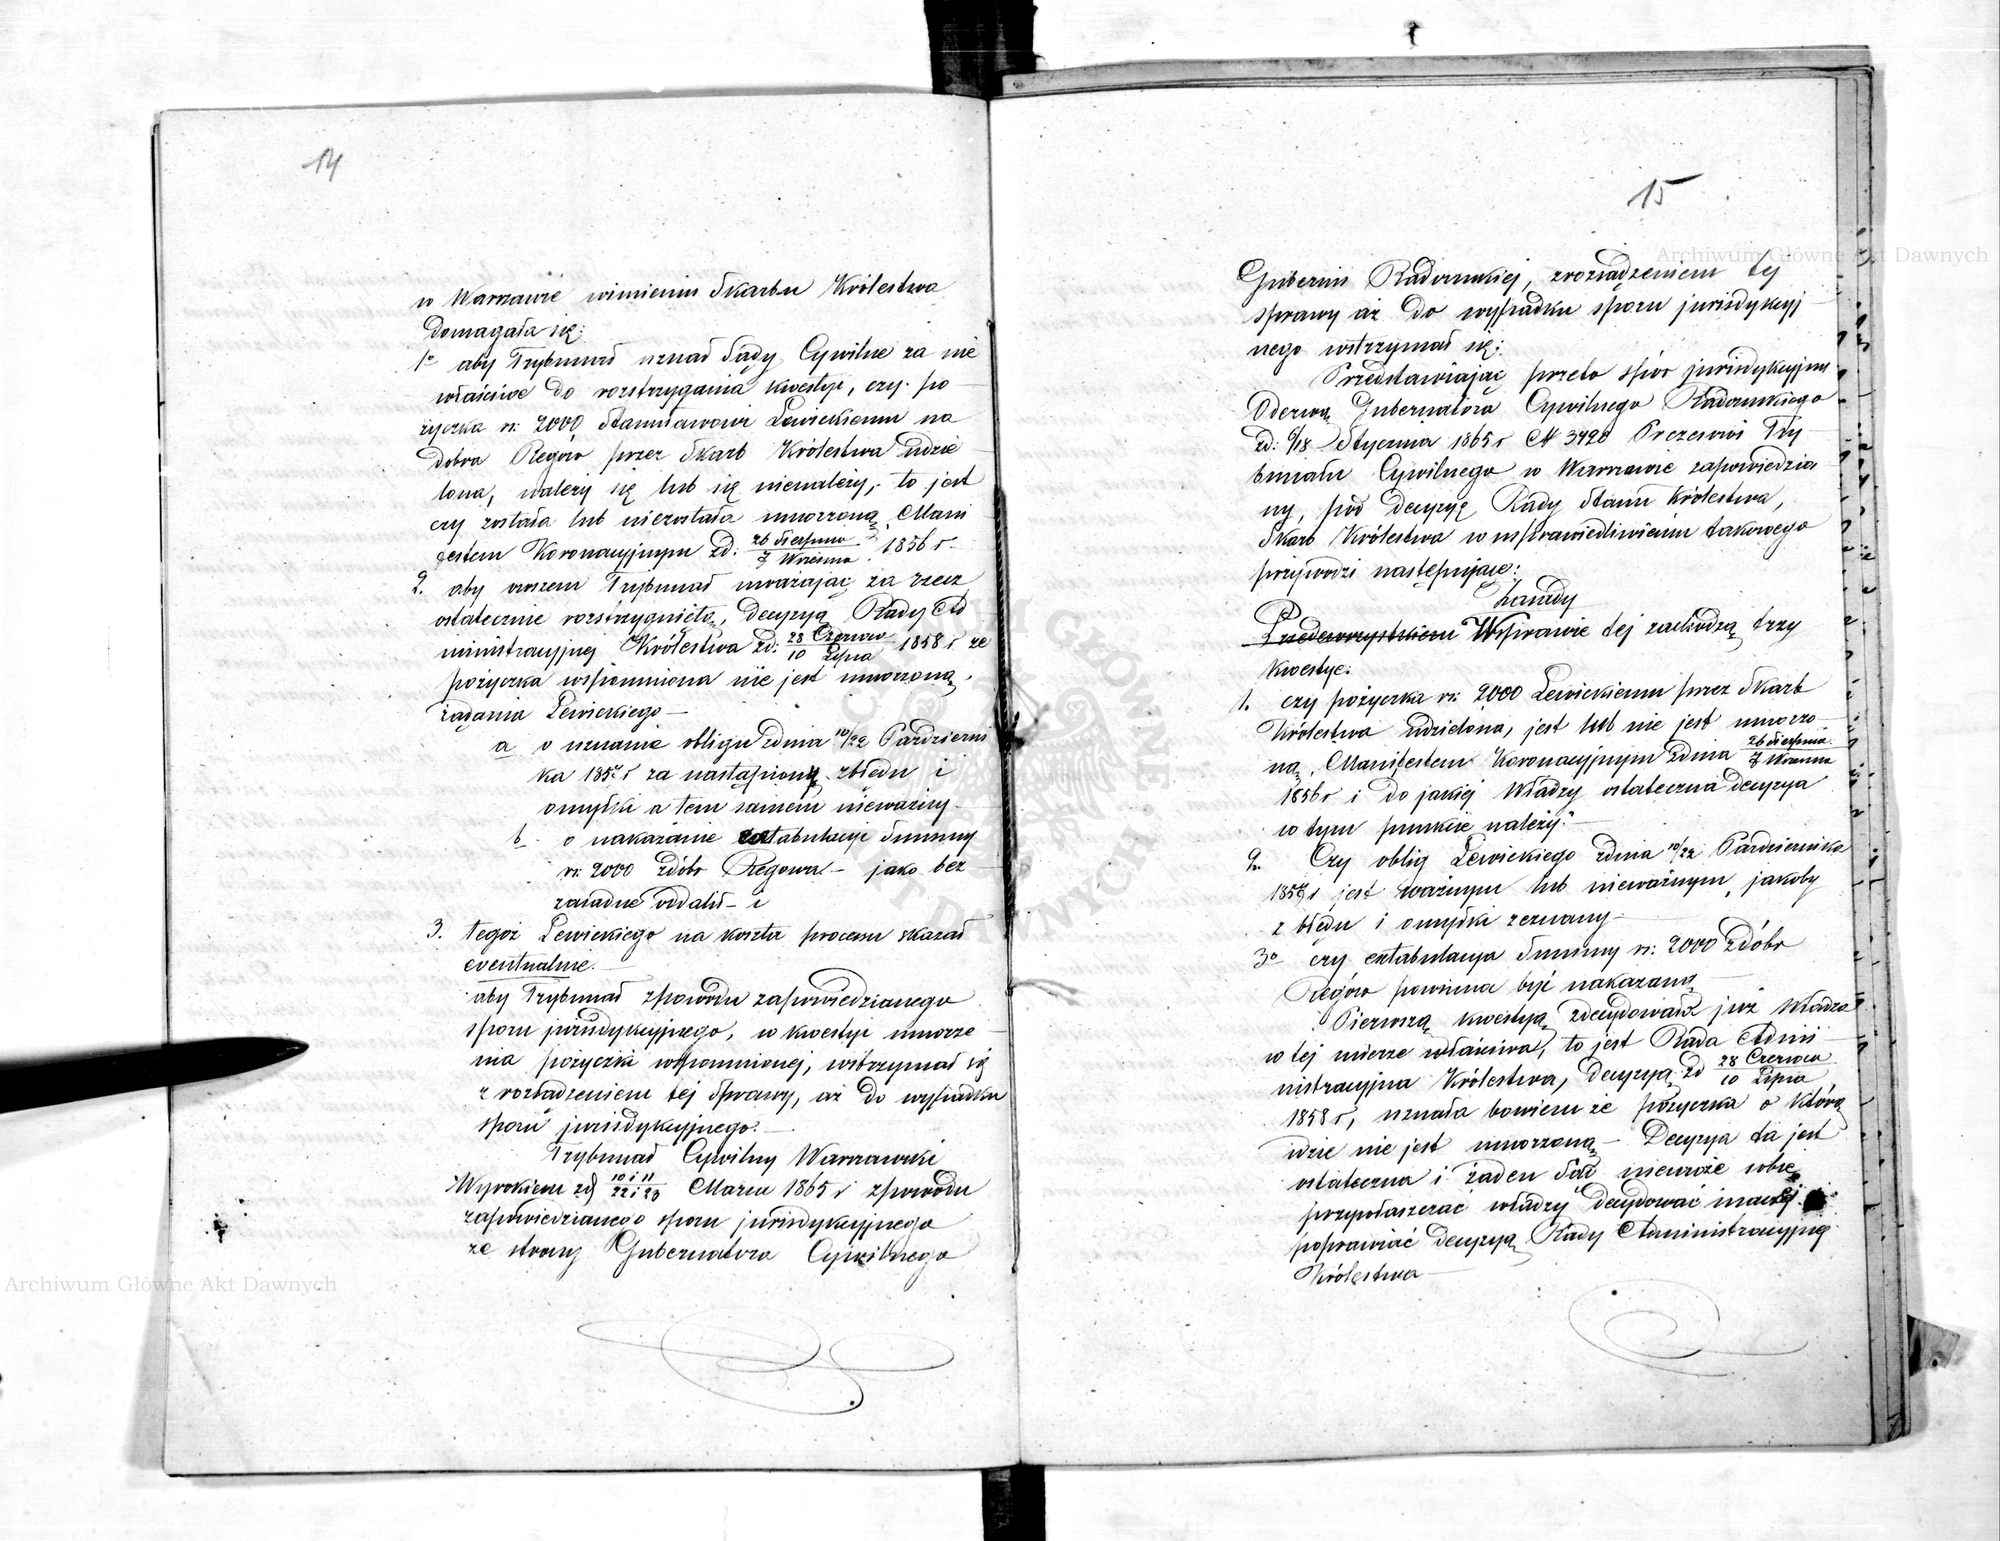 14
w Warszawie wimieniu Skarbu Królestwa
domagała się:
1o aby Trybunał uznał Sądy Cywilne za nie
właściwe do rozstrzygania kwestyi, czy po
życzka rs: 2000 Stanisławowi Lewickiemu na
dobra Regów przez Skarb Królestwa udzie
lona, należy się lub się nienależy, to jest
czy została lub niezostała umorzoną Mani
festem Koronacyjnym zd: 26 Sierpnia / 7 Września 1856 r
2. aby owszem Trybunał uważając za rzecz
ostatecznie rozstrzygniętą, decyzyą Rady Ad
ministracyjnej Królestwa zd: 28 Czerwca / 10 Lipca 1858 r że
pożyczka wspomniona nie jest umorzoną,
żądania Lewickiego —
a o uznanie obligu zdnia 10/22 Październi
ka 1857 r za nastąpiony zbłędu i
omyłki a tem samem nieważny
b o nakazanie extabulacyi Summy
rs: 2000 zdóbr Regowa — jako bez
zasadne oddalił — i
3. tegoż Lewickiego na koszta procesu skazał
eventualnie.
aby Trybunał zpowodu zapowiedzianego
sporu jurisdykcyjnego, w kwestyi umorze
nia pożyczki wspomnionej, wstrzymał się
z rozsądzeniem tej Sprawy, aż do wypadku
sporu jurisdykcyjnego. —
Trybunał Cywilny Warszawski
Wyrokiem zd 10 i 11 / 22 i 23 Marca 1865 r zpowodu
zapowiedzianego sporu jurisdykcyjnego
ze strony Gubernatora Cywilnego
15
Gubernii Radomskiej, zrozsądzeniem tej
sprawy aż do wypadku sporu jurisdykcyj
nego wstrzymał się;
Przedstawiając przeto spór jurisdykcyjny
Odezwą Gubernatora Cywilnego Radomskiego
zd: 6/18 Stycznia 1865 r N 3420 Prezesowi Try
bunału Cywilnego w Warszawie zapowiedzia
ny, pod decyzyę Rady Stanu Królestwa,
Skarb Królestwa w usprawiedliwieniu takowego
przywodzi następujące:
Zasady
Przedewszystkiem Wsprawie tej zachodzą trzy
kwestye:
1. czy pożyczka rs: 2000 Lewickiemu przez Skarb
Królestwa udzielona, jest lub nie jest umorzo
ną, Manifestem Koronacyjnym zdnia 26 Sierpnia / 7 Września
1856 r i do jakiej Władzy ostateczna decyzya
w tym punkcie należy? —
2. Czy oblig Lewickiego zdnia 10/22 Października
1857 r jest ważnym lub nieważnym, jakoby
z błędu i omyłki zeznany —
3o czy extabulacya Summy rs: 2000 zdóbr
Regów powinna być nakazaną
Pierwszą kwestyą zdecydowała już Władza
w tej mierze właściwa, to jest Rada Admi
nistracyjna Królestwa, decyzyą zd 28 Czerwca / 10 Lipca
1858 r, uznała bowiem że pożyczka o którą
idzie nie jest umorzoną — Decyzya ta jest
ostateczna i żaden Sąd niemoże sobie
przywłaszczać władzy decydować inaczej
poprawiać decyzyą Rady Administracyjnej
Królestwa —
Archiwum Główne Akt Dawnych
Archiwum Główne Akt Dawnych